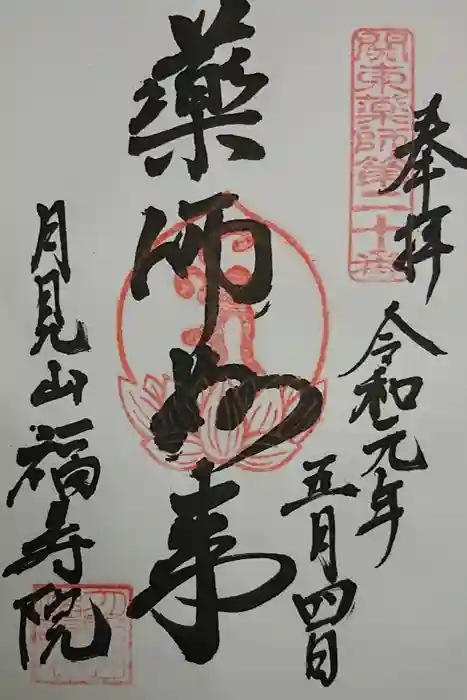 奉拝
関東薬師第二十番
令和元年
五月四日
薬師如来
月見山福寿院